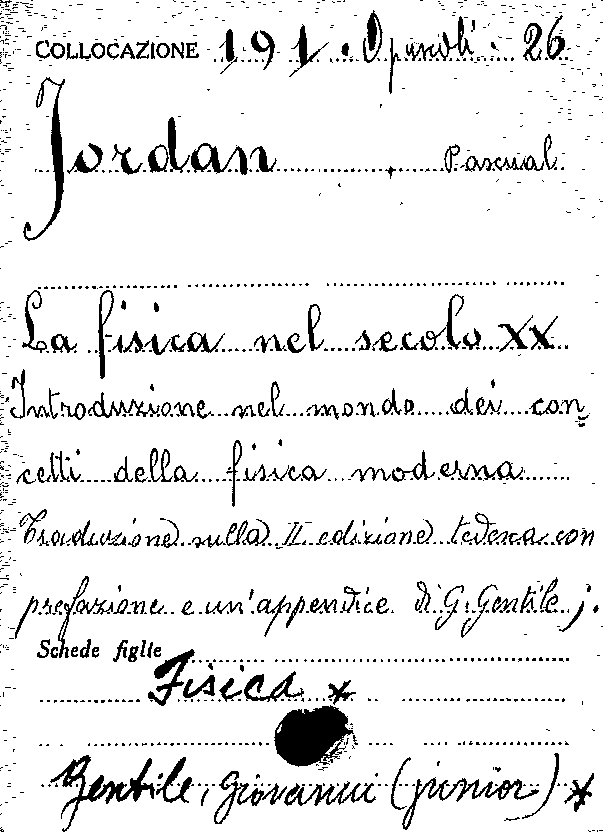 COLLOCAZIONE 191. Opuscoli. 26
Jordan, Pascual
La fisica nel secolo XX
Introduzione nel mondo dei con=
cetti della fisica moderna
Traduzione sulla II edizione tedesca con
prefazione e un'appendice di G. Gentile j.
Schede figlie
Fisica *
Gentile, Giovanni (junior) *